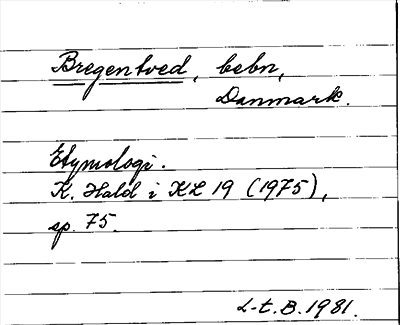 Bregentved, bebn,
Danmark.
Etymologi.
K. Hald i KL 19 (1975),
sp. 75.
L-t. B. 1981.